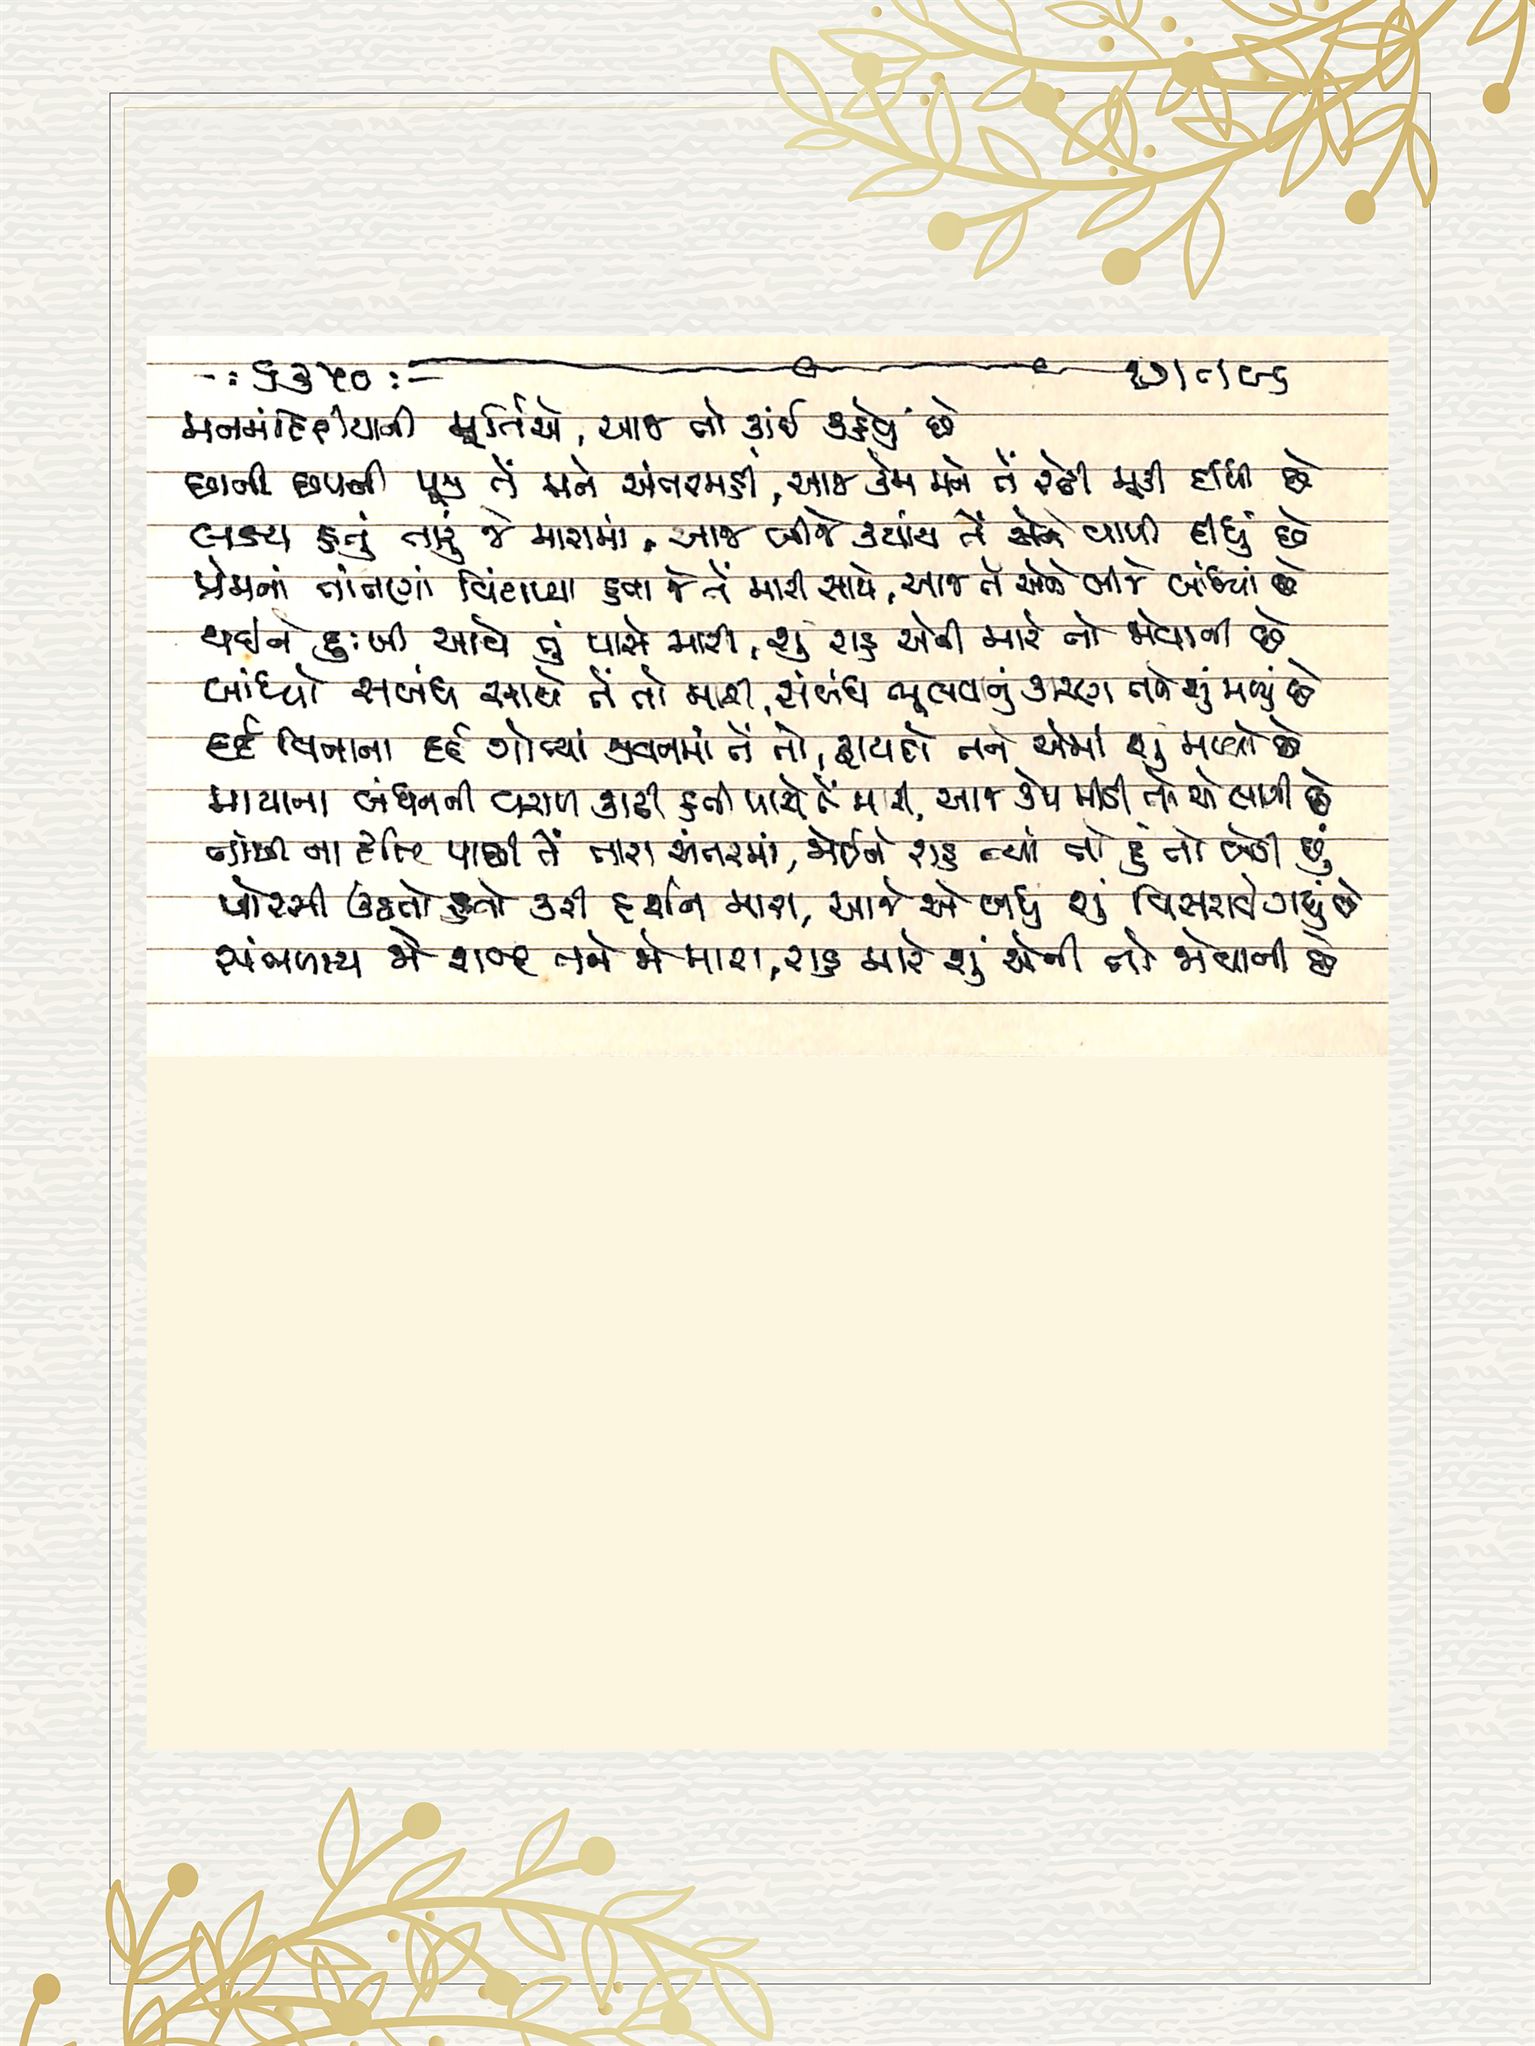 -: ૬૩૫૦ :-
મનમંદિરીયાની મૂર્તિએ, આજ તો કાંઈ કહેવું છે
છાની છપની પૂજી તેં મને અંતરમહીં, આજ કેમ મને તેં રઢી મૂકી દીધી છે
લક્ષ્ય હતું તારું જે મારામાં, આજ બીજે ક્યાંય તેં એને વાળી દીધું છે
પ્રેમનાં તાંતણાં વિંટાળ્યા હતા જે તેં મારી સાથે, આજ તેં એને બીજે બાંધ્યાં છે
થઈને દુઃખી આવે તું પાસે મારી, શું રાહ એની મારે તો જોવાની છે
બાંધ્યો સબંધ સાથે તેં તો મારી, સંબંધ ભૂલવાનું કારણ તને શું મળ્યું છે
દર્દ વિનાના દર્દ ગોત્યાં જીવનમાં તેં તો, ફાયદો તને એમાં શું મળ્યો છે
માયાના બંધનની વરાળ કાઢી હતી પાસે તેં મારી, આજ કેમ મીઠી તને એ લાગી છે
નાંખી ના દૃષ્ટિ પાછી તેં તારા અંતરમાં, જોઈને રાહ ત્યાં તો હું તો બેઠી છું
પોરસી ઊઠતો હતો કરી દર્શન મારા, આજે એ બધું શું વિસરાઈ ગયું છે
સાંભળાય જો શબ્દ તને જો મારા, રાહ મારે શું એની તો જોવાની છે